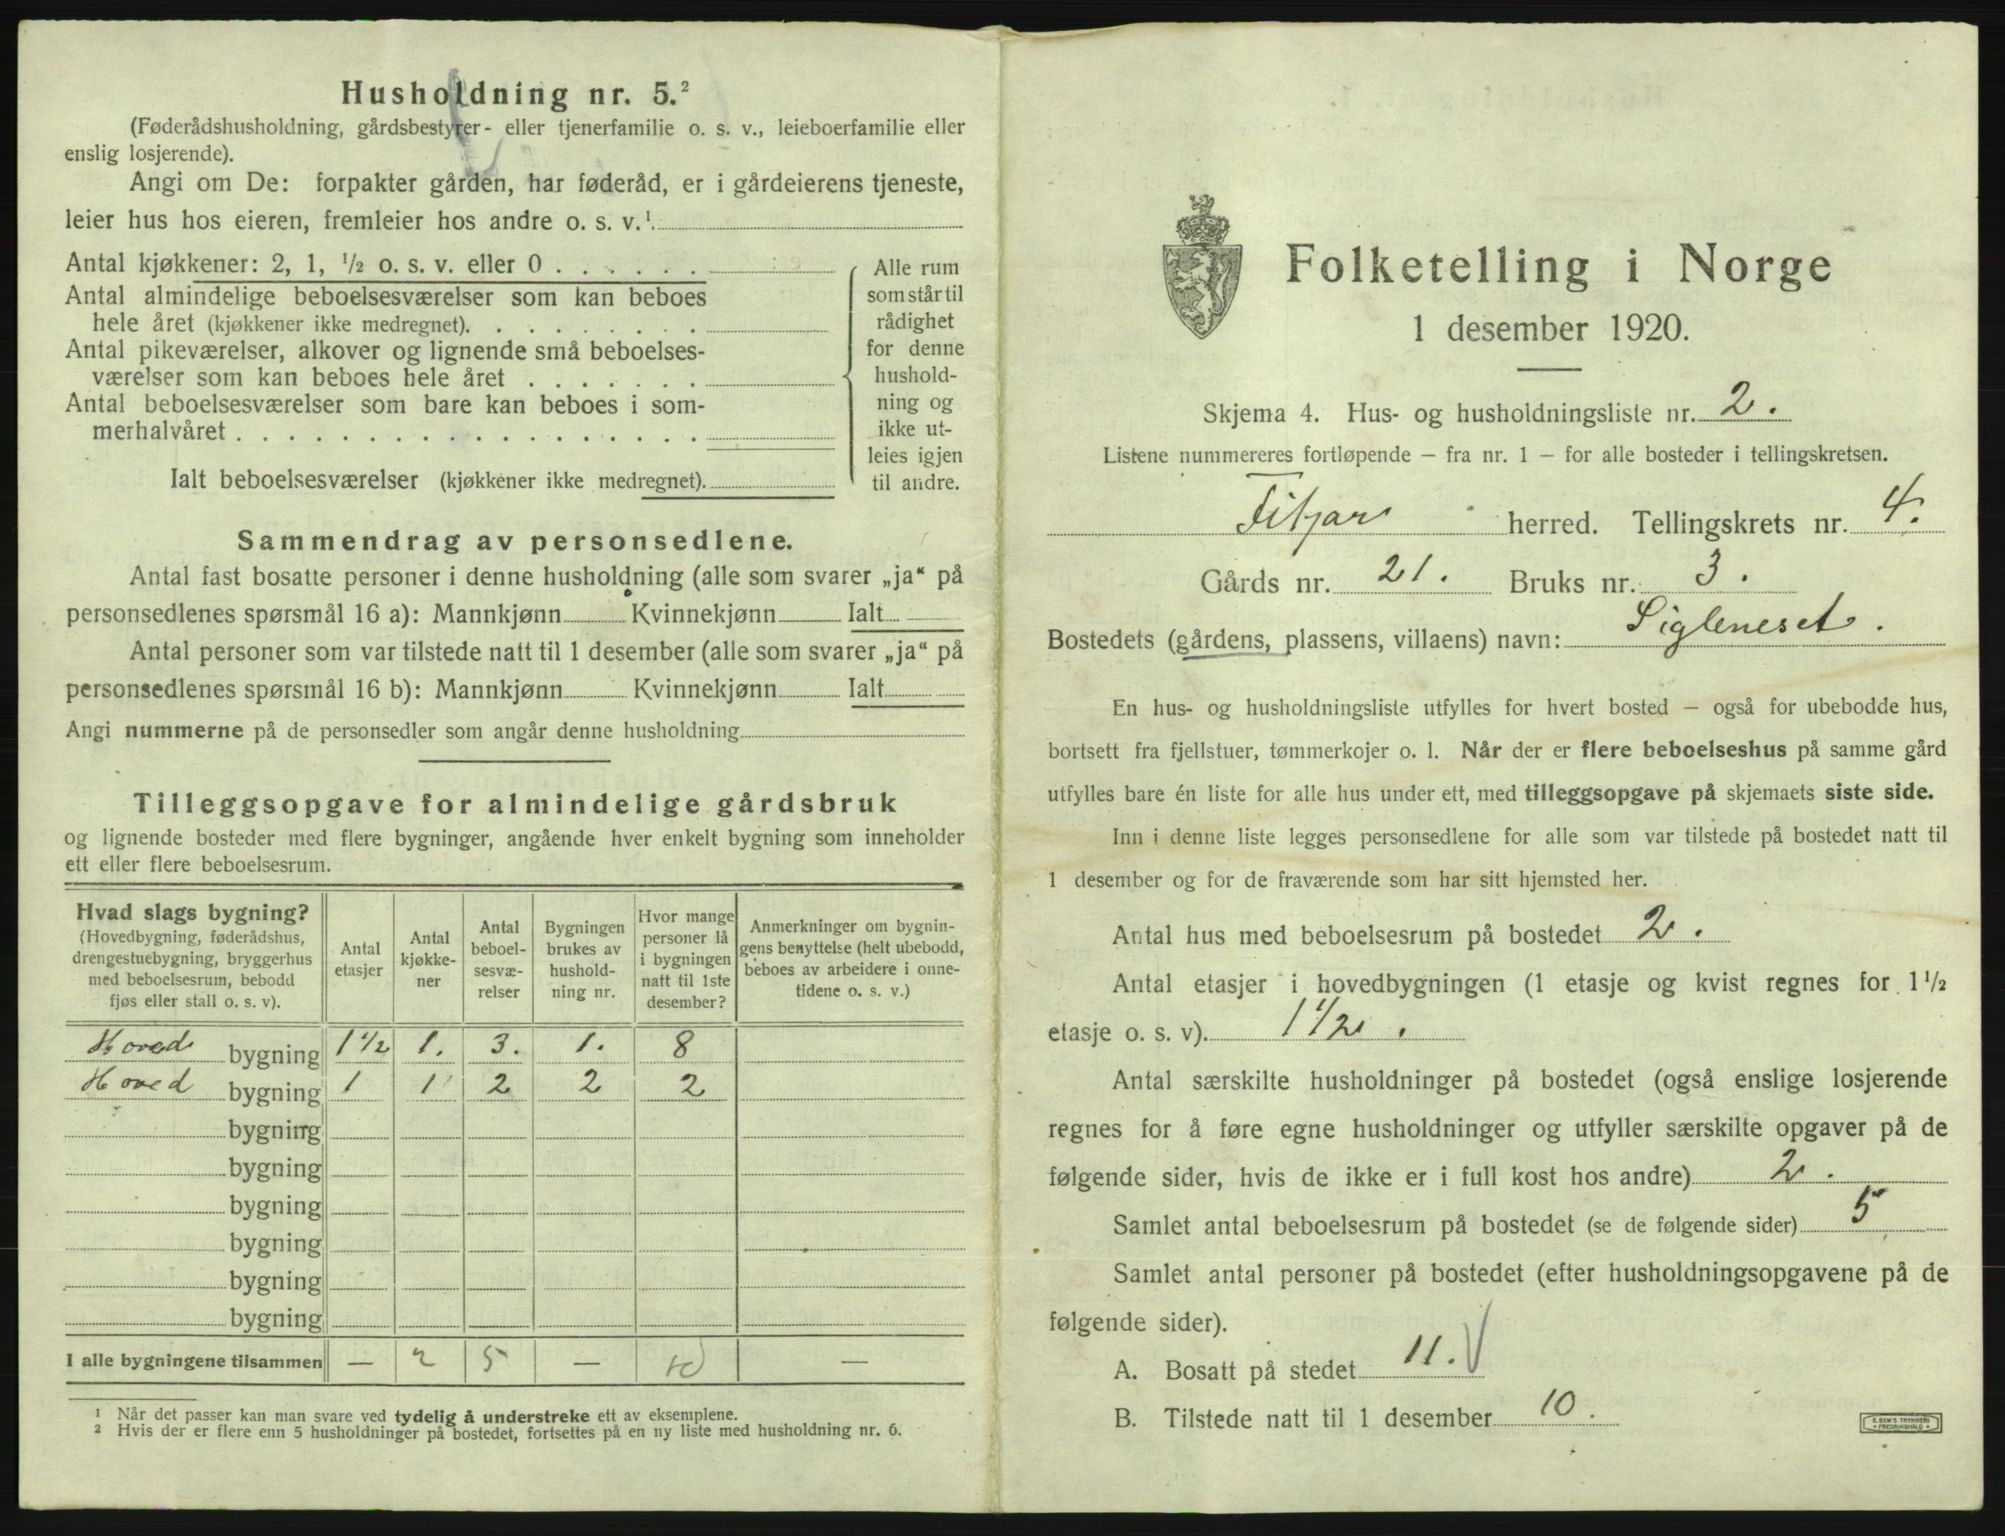 Husholdning nr. 5.²
(Føderådshusholdning, gårdsbestyrer- eller tjenerfamilie o. s. v., leieboerfamilie eller
enslig losjerende).
Angi om De: forpakter gården, har føderåd, er i gårdeierens tjeneste,
leier hus hos eieren, fremleier hos andre o. s. v.¹
Antal kjøkkener: 2, 1, ½ o. s. v. eller 0 . . . . . .
Antal almindelige beboelsesværelser som kan beboes
hele året (kjøkkener ikke medregnet). . . . . . . . . .
Antal pikeværelser, alkover og lignende små beboelses-
værelser som kan beboes hele året . . . . . . .
Antal beboelsesværelser som bare kan beboes i som-
merhalvåret . . . . . . . . . . . . . . . . . .
Ialt beboelsesværelser (kjøkkener ikke medregnet).
Alle rum
som står til
rådighet
for denne
hushold-
ning og
ikke ut-
leies igjen
til andre.
Sammendrag av personsedlene.
Antal fast bosatte personer i denne husholdning (alle som svarer „ja“ på
personsedlenes spørsmål 16 a): Mannkjønn Kvinnekjønn Ialt
Antal personer som var tilstede natt til 1 desember (alle som svarer „ja“ på
personsedlenes spørsmål 16 b): Mannkjønn Kvinnekjønn Ialt
Angi nummerne på de personsedler som angår denne husholdning
Tilleggsopgave for almindelige gårdsbruk
og lignende bosteder med flere bygninger, angående hver enkelt bygning som inneholder
ett eller flere beboelsesrum.
Hvad slags bygning?
(Hovedbygning, føderådshus,
drengestuebygning, bryggerhus
med beboelsesrum, bebodd
fjøs eller stall o. s. v).
Antal
etasjer
Antal
kjøkke-
ner
Antal
beboel-
sesvæ-
relser
Bygningen
brukes av
hushold-
ning nr.
Hvor mange
personer lå
i bygningen
natt til 1ste
desember?
Anmerkninger om bygnin-
gens benyttelse (helt ubebodd,
beboes av arbeidere i onne-
tidene o. s. v.)
Hoved bygning 1½ 1. 3. 1. 8
Hoved bygning 1 1 2 2 2
bygning
bygning
bygning
bygning
bygning
bygning
I alle bygningene tilsammen — 2 5 — 10 —
¹ Når det passer kan man svare ved tydelig å understreke ett av eksemplene.
² Hvis der er flere enn 5 husholdninger på bostedet, fortsettes på en ny liste med husholdning nr. 6.
Folketelling i Norge
1 desember 1920.
Skjema 4. Hus- og husholdningsliste nr. 2.
Listene nummereres fortløpende – fra nr. 1 – for alle bosteder i tellingskretsen.
Fitjar herred. Tellingskrets nr. 4.
Gårds nr. 21. Bruks nr. 3.
Bostedets (gårdens, plassens, villaens) navn: Sigleneset.
En hus- og husholdningsliste utfylles for hvert bosted – også for ubebodde hus,
bortsett fra fjellstuer, tømmerkojer o. l. Når der er flere beboelseshus på samme gård
utfylles bare én liste for alle hus under ett, med tilleggsopgave på skjemaets siste side.
Inn i denne liste legges personsedlene for alle som var tilstede på bostedet natt til
1 desember og for de fraværende som har sitt hjemsted her.
Antal hus med beboelsesrum på bostedet 2.
Antal etasjer i hovedbygningen (1 etasje og kvist regnes for 1½
etasje o. s. v). 1½.
Antal særskilte husholdninger på bostedet (også enslige losjerende
regnes for å føre egne husholdninger og utfyller særskilte opgaver på de
følgende sider, hvis de ikke er i full kost hos andre) 2.
Samlet antal beboelsesrum på bostedet (se de følgende sider) 5
Samlet antal personer på bostedet (efter husholdningsopgavene på de
følgende sider).
A. Bosatt på stedet 11.
B. Tilstede natt til 1 desember 10.
E. SEM'S TRYKKERI
FREDRIKSHALD